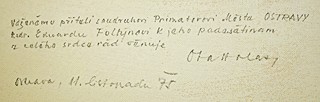 Váženému příteli soudruhovi Primátorovi Města OSTRAVY
Zdr. Eduardu Foltýnovi k jeho padesátinám
z celého srdce rád věnuje
Ota Holas
Ostrava, 11. listopadu 75